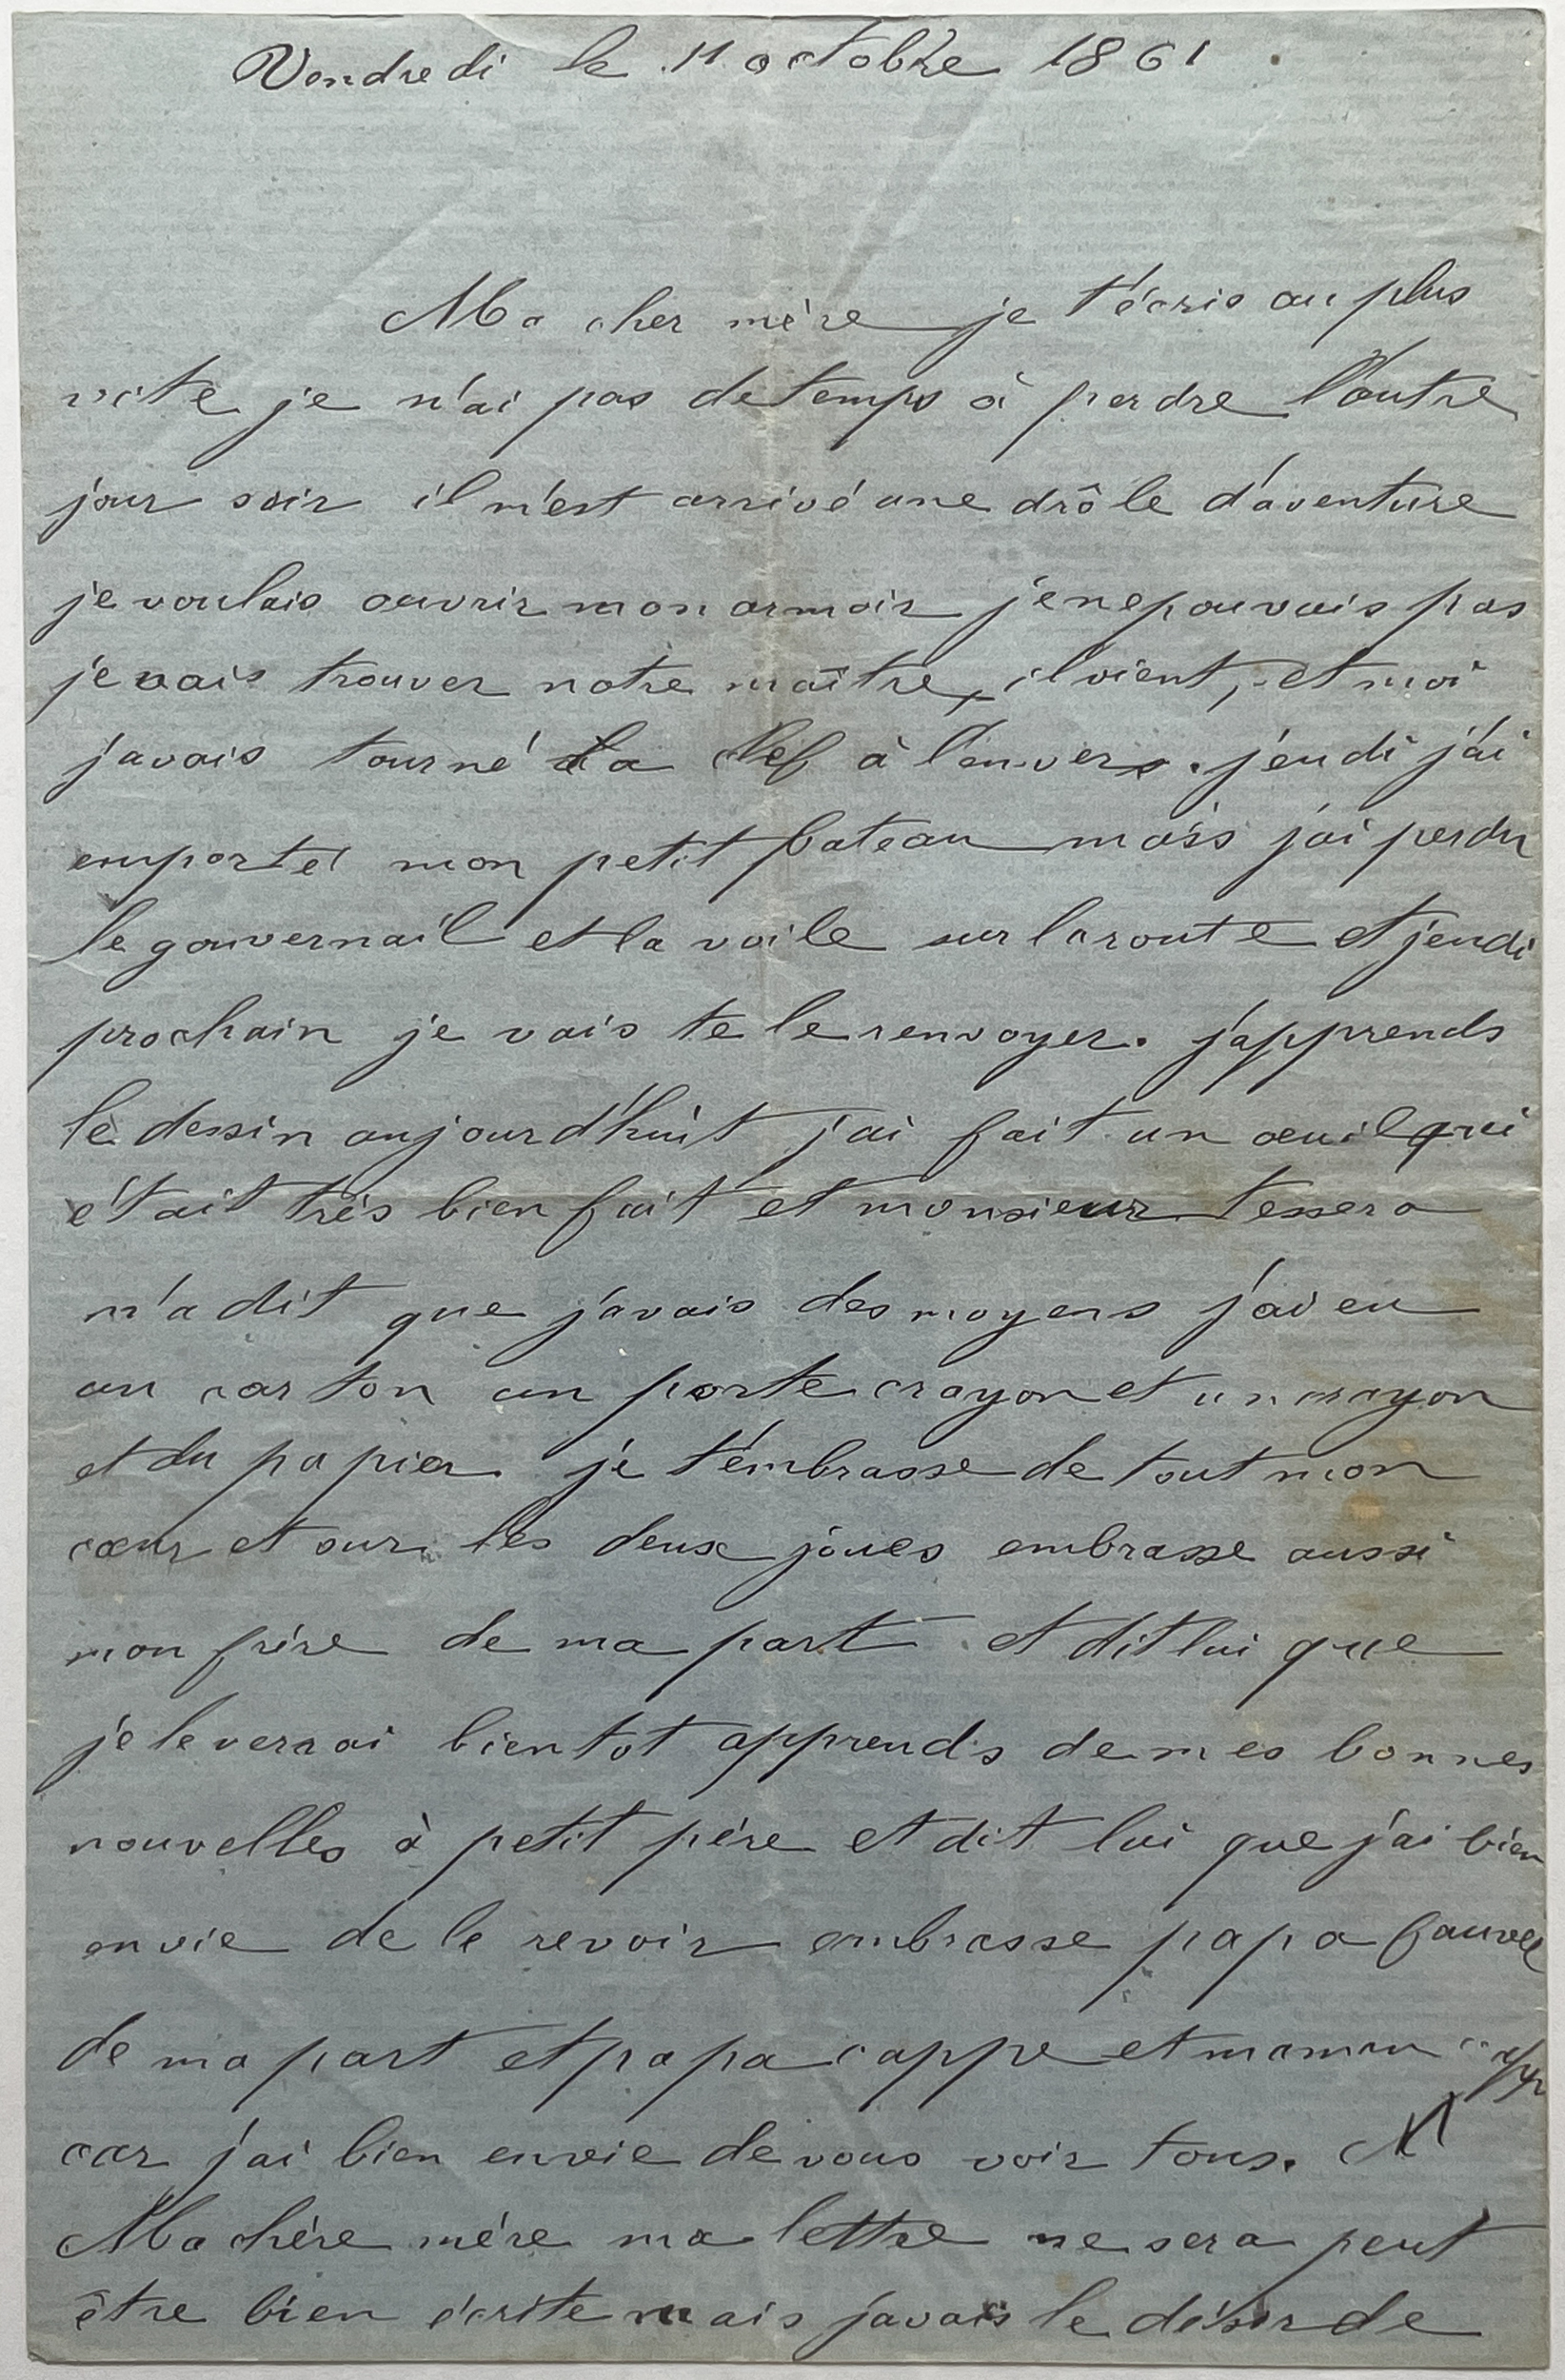 Vendredi le 11 octobre 1861.
Ma cher mère je t'écris au plus
vite je n'ai pas de temps à perdre l'autre
jour soir il m'est arrivé une drôle d'aventure
je voulais ouvrir mon armoir je ne pouvais pas
je vais trouver notre maître, il vient, et moi
j'avais tourné la clef à l'envers. jeudi j'ai
emporté mon petit bateau mais j'ai perdu
le gouvernail et la voile sur la route et jeudi
prochain je vais te le renvoyer. j'apprends
le dessin aujourd'huit j'ai fait un oeuil qui
était très bien fait et monsieur tessera
m'a dit que j'avais des moyens j'ai eu
un carton un porte crayon et un crayon
et du papier je t'embrasse de tout mon
cœur et sur les deux joues embrasse aussi
mon frère de ma part et dit lui que
je le verrai bientot apprends de mes bonnes
nouvelles à petit père et dit lui que j'ai bien
envie de le revoir embrasse papa fauvel
de ma part et papa cappe et maman cappe
car j'ai bien envie de vous voir tous. M
Ma chère mère ma lettre ne sera peut
être bien écrite mais j'avais le désir de